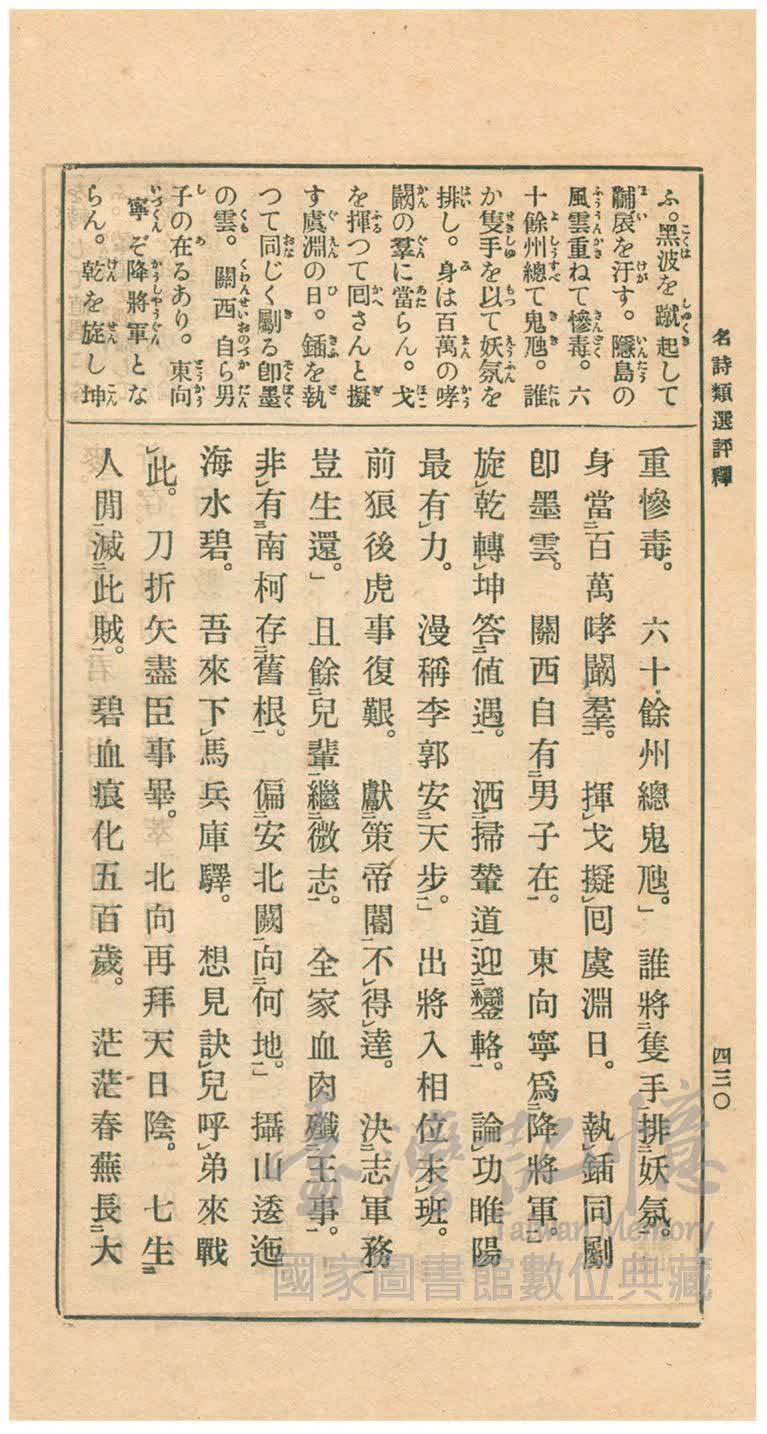 名詩類選評釋
四三〇
ふ。黑波を蹴起して
黼扆を汙す。隱島の
風雲重ねて慘毒。六
十餘州總て鬼虺。誰
か隻手を以て妖氛を
排し。身は百萬の哮
闞の羣に當らん。戈
を揮つて囘さんと擬
す虞淵の日。鍤を執
つて同じく劚る卽墨
の雲。關西自ら男
子の在るあり。東向
寧ぞ降將軍とな
らん。乾を旋し坤
重慘毒。六十餘州總鬼虺。」誰將隻手排妖氛。
身當百萬哮闞羣。揮戈擬囘虞淵日。執鍤同劚
卽墨雲。關西自有男子在。東向寧爲降將軍。
旋乾轉坤答値遇。洒掃輦道迎鑾輅。論功睢陽
最有力。漫稱李郭安天步。」出將入相位未班。
前狼後虎事復艱。獻策帝閽不得達。決志軍務
豈生還。」且餘兒輩繼微志。全家血肉殲王事。
非有南柯存舊根。偏安北闕向何地。」攝山逶迤
海水碧。吾來下馬兵庫驛。想見訣兒呼弟來戰
此。刀折矢盡臣事畢。北向再拜天日陰。七生
人閒滅此賊。碧血痕化五百歲。茫茫春蕪長大
臺灣記憶
Taiwan Memory
國家圖書館數位典藏